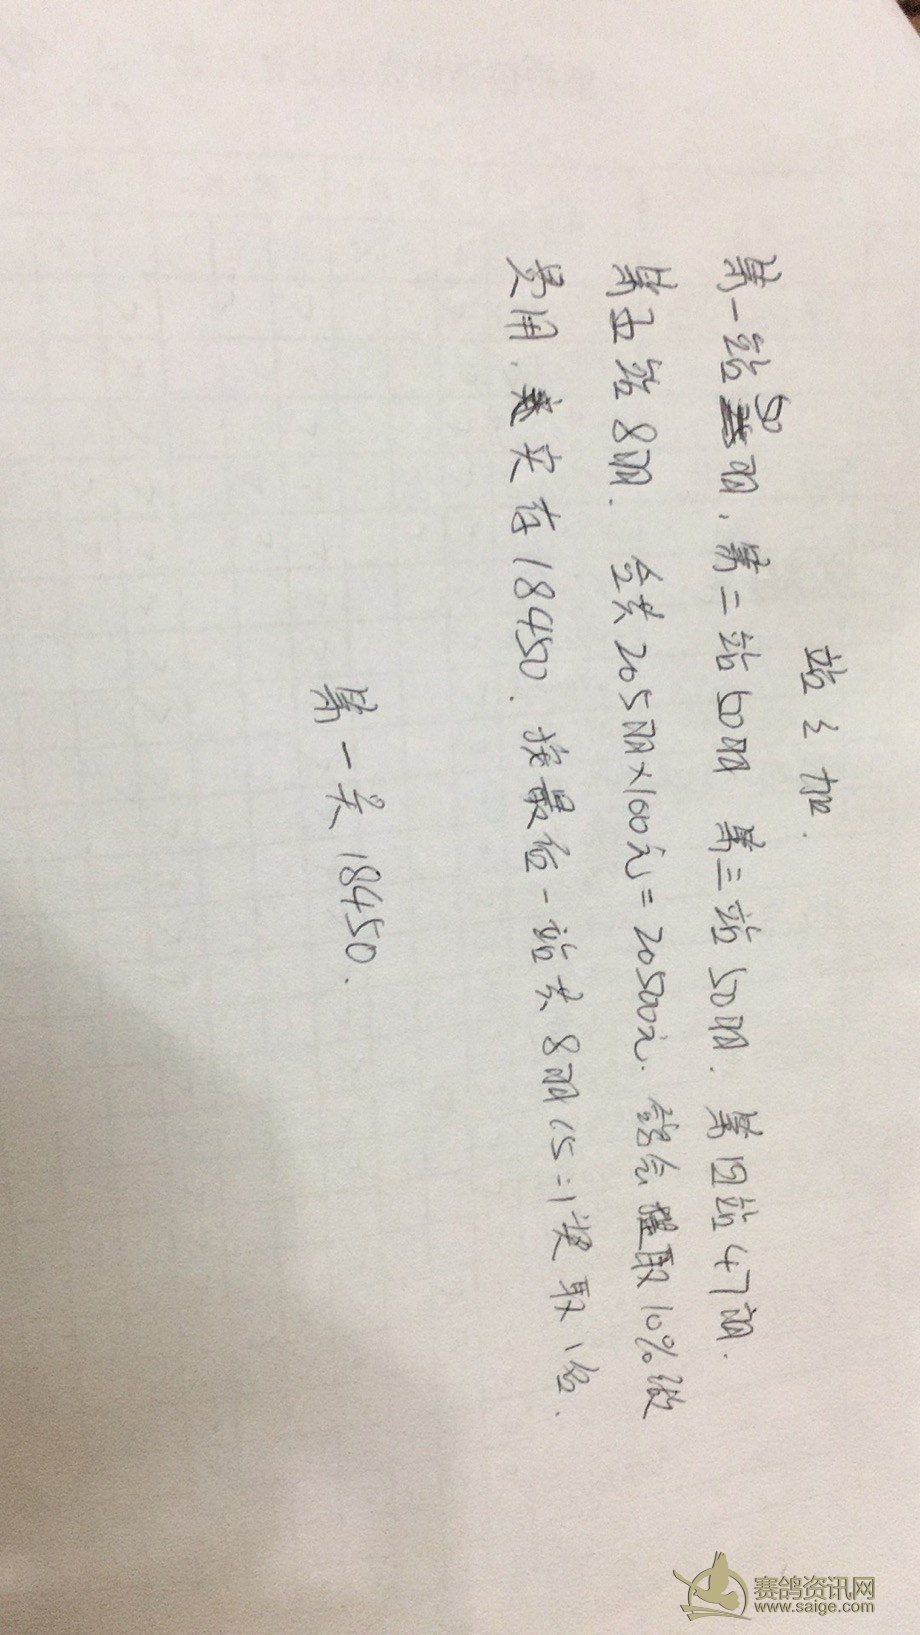 站々加.
第一站50羽.第二站50羽 第三站50羽.第四站47羽.
第五站8羽. 全共205羽×100元=20500元.鸽会提取10%做
费用.实存18450.按最后一站共8羽15=1奖取1名.
第一关18450.
赛鸽资讯网
www.saige.com